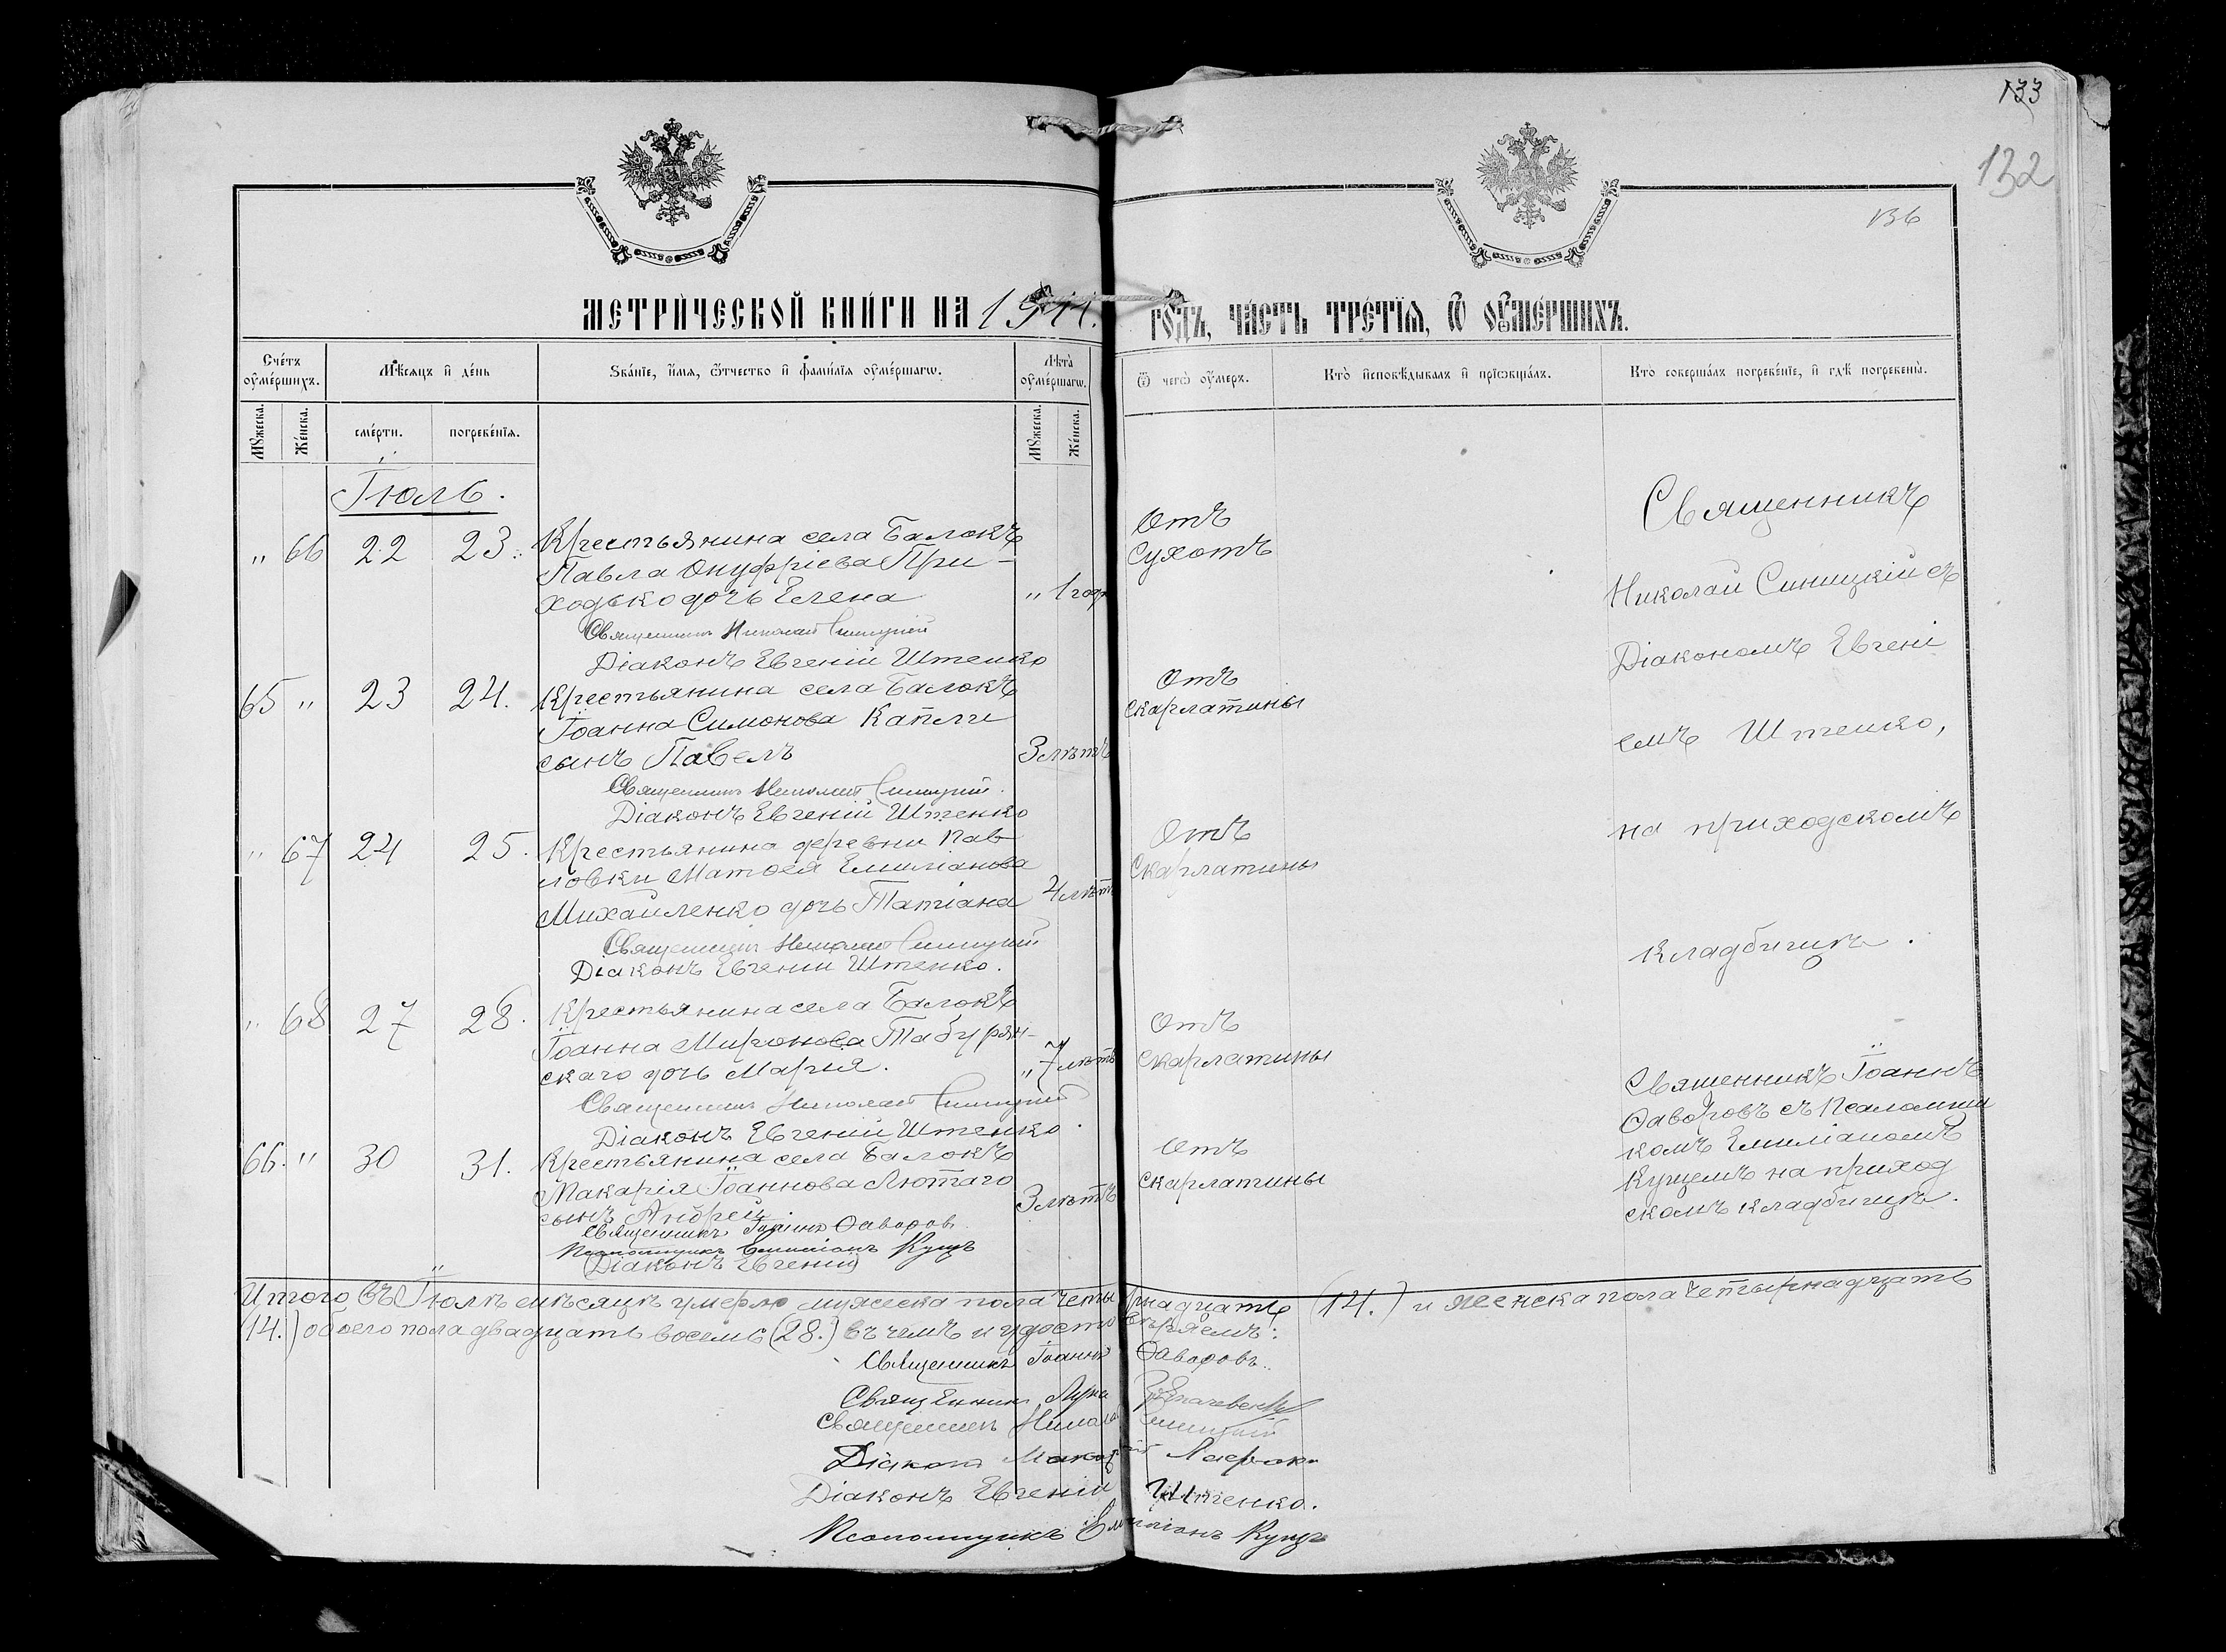 133
132
136
МЕТРИЧЕСКОЙ КНИГИ НА 1911. ГОДЪ, ЧАСТЬ ТРЕТІѦ, Ѿ ОУМЕРШИХЪ.
Счетъ оумершихъ.
Мѣсяцъ и день
Званіе, имя, отчество и фамилія оумершагѡ.
Лѣта оумершагѡ.
Ѿ чегѡ оумеръ.
Кто исповѣдывалъ и пріѡбщалъ.
Кто совершалъ погребеніе, и гдѣ погребены.
Мужеска.
Женска.
смерти.
погребенія.
Мужеска.
Женска.
Іюль.
" 66 22 23. Крестьянина села Балокъ
Павла Онуфріева При-
ходько дочь Елена " 1 годъ
Отъ
Сухотъ
Священникъ Николай Синицкій
Діаконъ Евгеній Штенко
65 " 23 24. Крестьянина села Балокъ
Іоанна Симонова Капли
сынъ Павелъ 3 лѣтъ
Отъ
скарлатины
Священникъ Николай Синицкій.
Діаконъ Евгеній Штенко
" 67 24 25. Крестьянина деревни Пав-
ловки Матѳея Емиліанова
Михайленко дочь Татіана 4 лѣт
Отъ
Скарлатины
Священникъ Николай Синицкій
Діаконъ Евгеній Штенко.
" 68 27 28. Крестьянина села Балокъ
Іоанна Миронова Табурян-
скаго дочь Марія. " 7 лѣтъ
Отъ
Скарлатины
Священникъ Николай Синицкій
Діаконъ Евгеній Штенко.
66. " 30 31. Крестьянина села Балокъ
Макарія Іоаннова Лютаго
сынъ Андрей. 3 лѣтъ
Отъ
скарлатины
Священникъ Іоаннъ Ѳаворовъ.
Псаломщикъ Емиліанъ Кущъ
Діаконъ Евгеній
Священникъ
Николай Синицкій съ
Діакономъ Евгені
емъ Штенко,
на приходскомъ
кладбищѣ.
Священникъ Іоаннъ
Ѳаворовъ съ Псаломщи
комъ Емиліаномъ
Кущемъ на приход
скомъ кладбищѣ.
Итого въ Іюлѣ мѣсяцѣ умерло мужеска пола четырнадцать (14.) и женска пола четырнадцать
(14.) обоего пола двадцать восемь (28.) въ чемъ и удостовѣряемъ:
Священникъ Іоаннъ Ѳаворовъ.
Священникъ Лука
Священникъ Николай Синицкій
Діаконъ Макарій
Діаконъ Евгеній Штенко.
Псаломщикъ Емиліанъ Кущъ